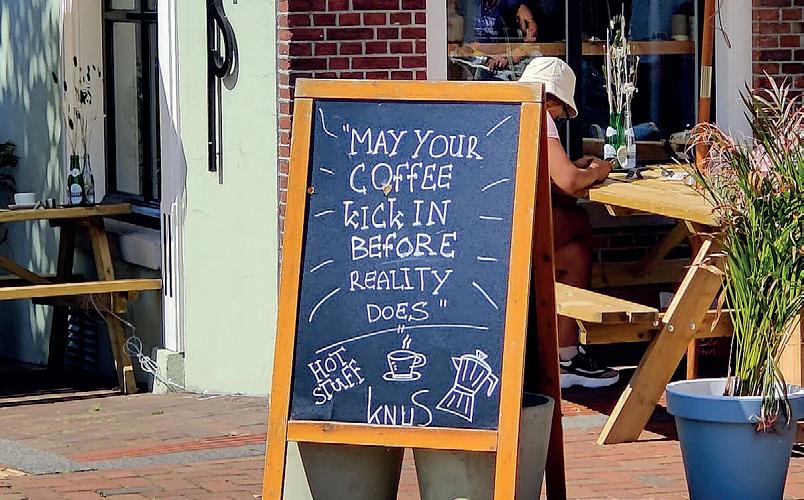 "MAY YOUR
COFFEE
KICK IN
BEFORE
REALITY
DOES"
HOT
STUFF
KNUS